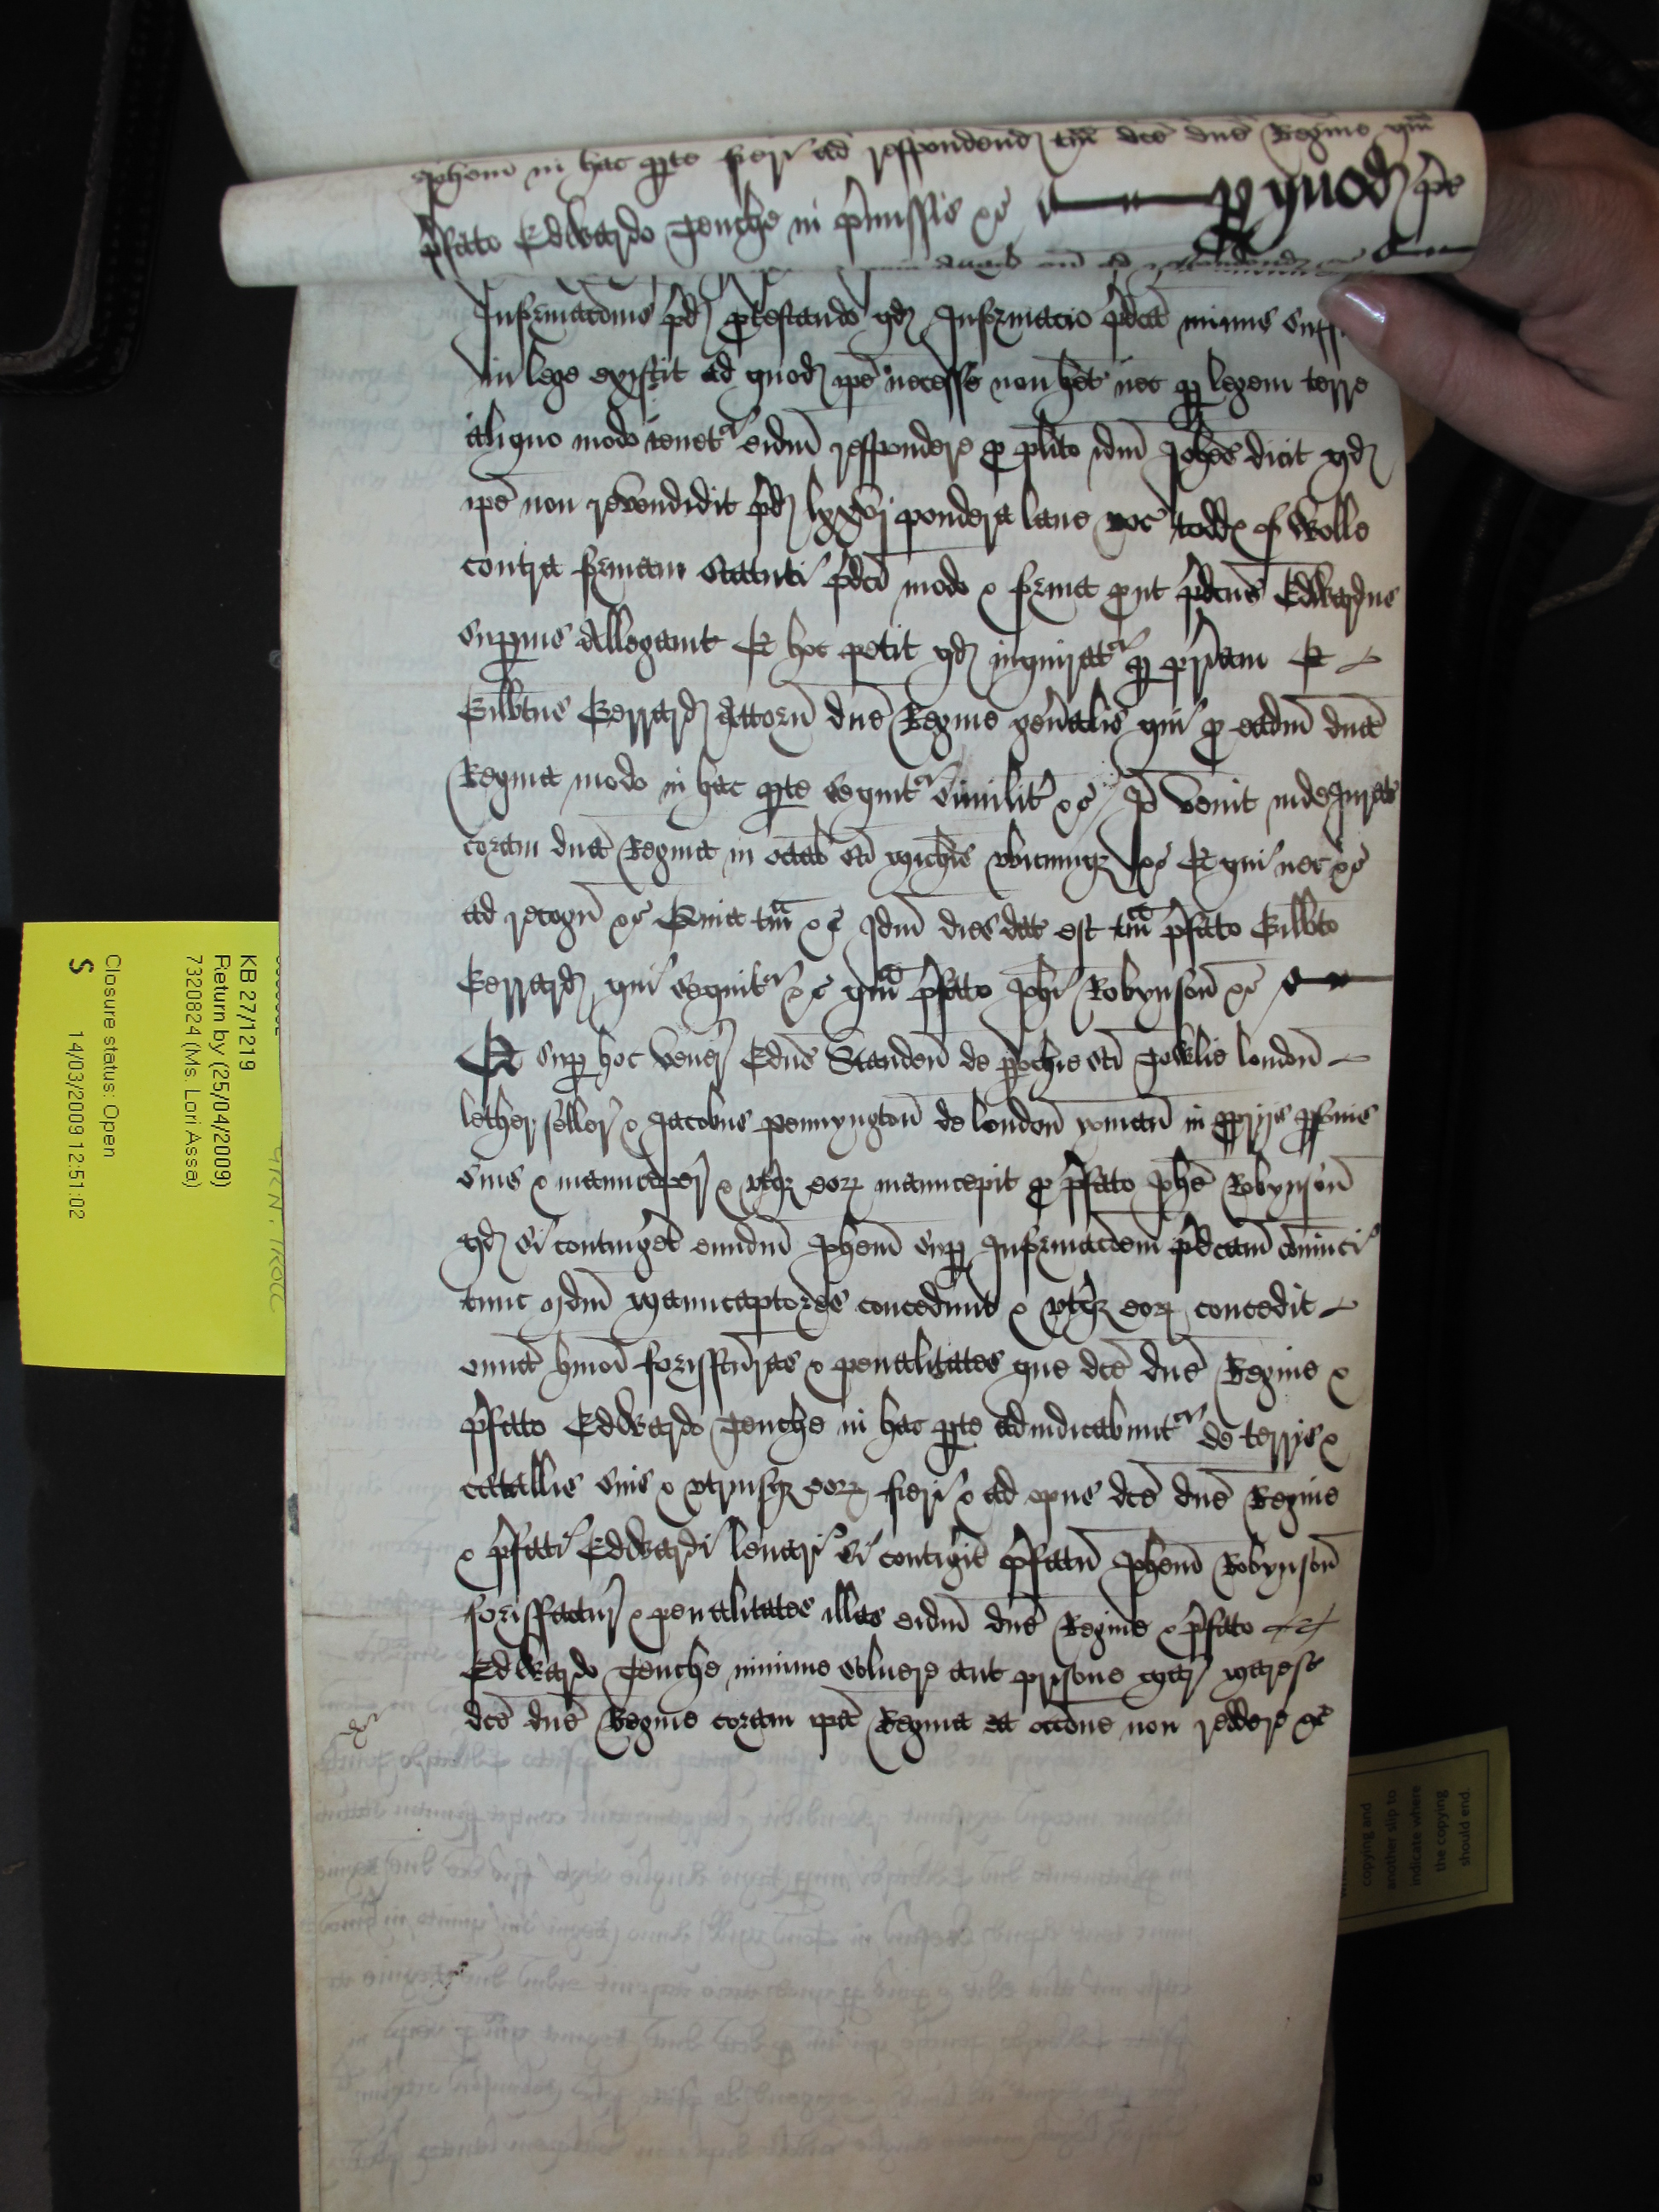 Joh̄em in hac ꝑte fieri ad respondend tm̄ dc̄e dn̄e Regine qm̄
p̄fato Edwardo Tenche in p̄missis ⁊c̄ ꝑ quod p̄c̄
Informac̄onis p̄d ꝓtestando qd Informacio p̄dc̄a minus
in lege existit ad quod ip̄e necesse non het nec ꝑ legem terre
aliquo modo tenetr eidm̄ respondere ꝓ pl̄ito idm̄ Joh̄es dicit qd
ip̄e non revendidit p̄d lxxvj pondera lane voc todd of Wolle
contra formam Statuti p̄dc̄i modo ⁊ forma ꝓut p̄dc̄us Edwardus
suꝑius Allegavit Et hoc petit qd inquiratr ꝑ pr̄iam Et
Gilb̄tus Gerrard Attorn̄ dn̄e Regine gen̄alis qui ꝓ eadm̄ dn̄a
Regina modo in hac ꝑte sequitr similit̄ ⁊c̄ Jō venit inde Jurat
coram dn̄a Regina in octab sc̄i Mich̄is vbicumqꝫ ⁊c̄ Et qui nec ⁊c̄
ad recogn̄ ⁊c̄ Quia tm̄ ⁊c̄ Idm̄ dies dat est tm̄ p̄fato Gilb̄to
Gerrard qui sequitr ⁊c̄ qm̄ p̄fato Joh̄i Robynson̄ ⁊c̄
Et suꝑ hoc vener Edūs Standen̄ de ꝑochie sc̄i london̄
lether seller ⁊ Jacobus pennyngton̄ de london̄ yoman̄ in ꝓprijs ꝑsonis
suis ⁊ manuceper ⁊ vtqꝫ eoꝝ manucepit ꝓ p̄fato Joh̄e Robynson̄
qd si contingēt eundm̄ Joh̄em suꝑ Informac̄oem p̄dc̄am convinci
tunc ijdm̄ Manucaptores concedunt ⁊ vtqꝫ eoꝝ concedit
omn̄ia hmōi forisfcūras ⁊ penalitates que dc̄e dn̄e Regine ⁊
p̄fato Edwardo Tenche in hac ꝑte adiudicabuntr de terris ⁊
catallis suis ⁊ vtriusqꝫ eoꝝ fieri ⁊ ad opus dc̄e dn̄e Regine
⁊ p̄fati Edwardi levari si contigit̄ p̄fatū Joh̄em Robynson̄
forisfactur ⁊ penalitates illas eidm̄ dn̄e Regine ⁊ p̄fato
Edwardo Tenche minime soluere aut prisone Mar Maresc
dc̄e dn̄e Regine coram ip̄a Regina ea occ̄one non reddere ⁊c̄
KB 27/1219
Return by (25/04/2009)
7320824 (Ms. Lori Assa)
Closure status: Open
S 14/03/2009 12:51:02
copying and
another slip to
indicate where
the copying
should end.